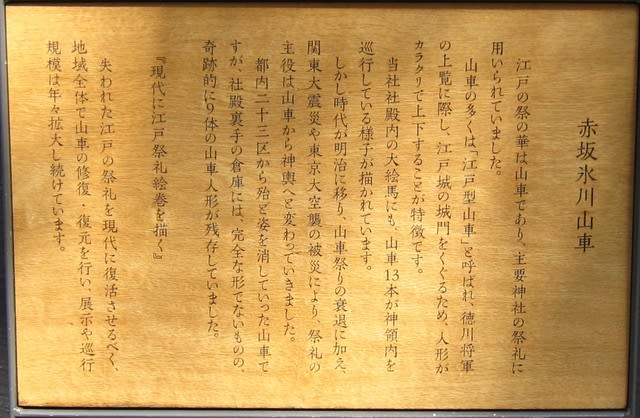 赤坂氷川山車
江戸の祭の華は山車であり、主要神社の祭礼に
用いられていました。
山車の多くは「江戸型山車」と呼ばれ、徳川将軍
の上覧に際し、江戸城の城門をくぐるため、人形が
カラクリで上下することが特徴です。
当社社殿内の大絵馬にも、山車13本が神領内を
巡行している様子が描かれています。
しかし時代が明治に移り、山車祭りの衰退に加え、
関東大震災や東京大空襲の被災により、祭礼の
主役は山車から神輿へと変わっていきました。
都内二十三区から殆ど姿を消していった山車で
すが、社殿裏手の倉庫には、完全な形でないものの、
奇跡的に9体の山車人形が残存していました。
『現代に江戸祭礼絵巻を描く』
失われた江戸の祭礼を現代に復活させるべく、
地域全体で山車の修復　復元を行い、展示や巡行
規模は年々拡大し続けています。